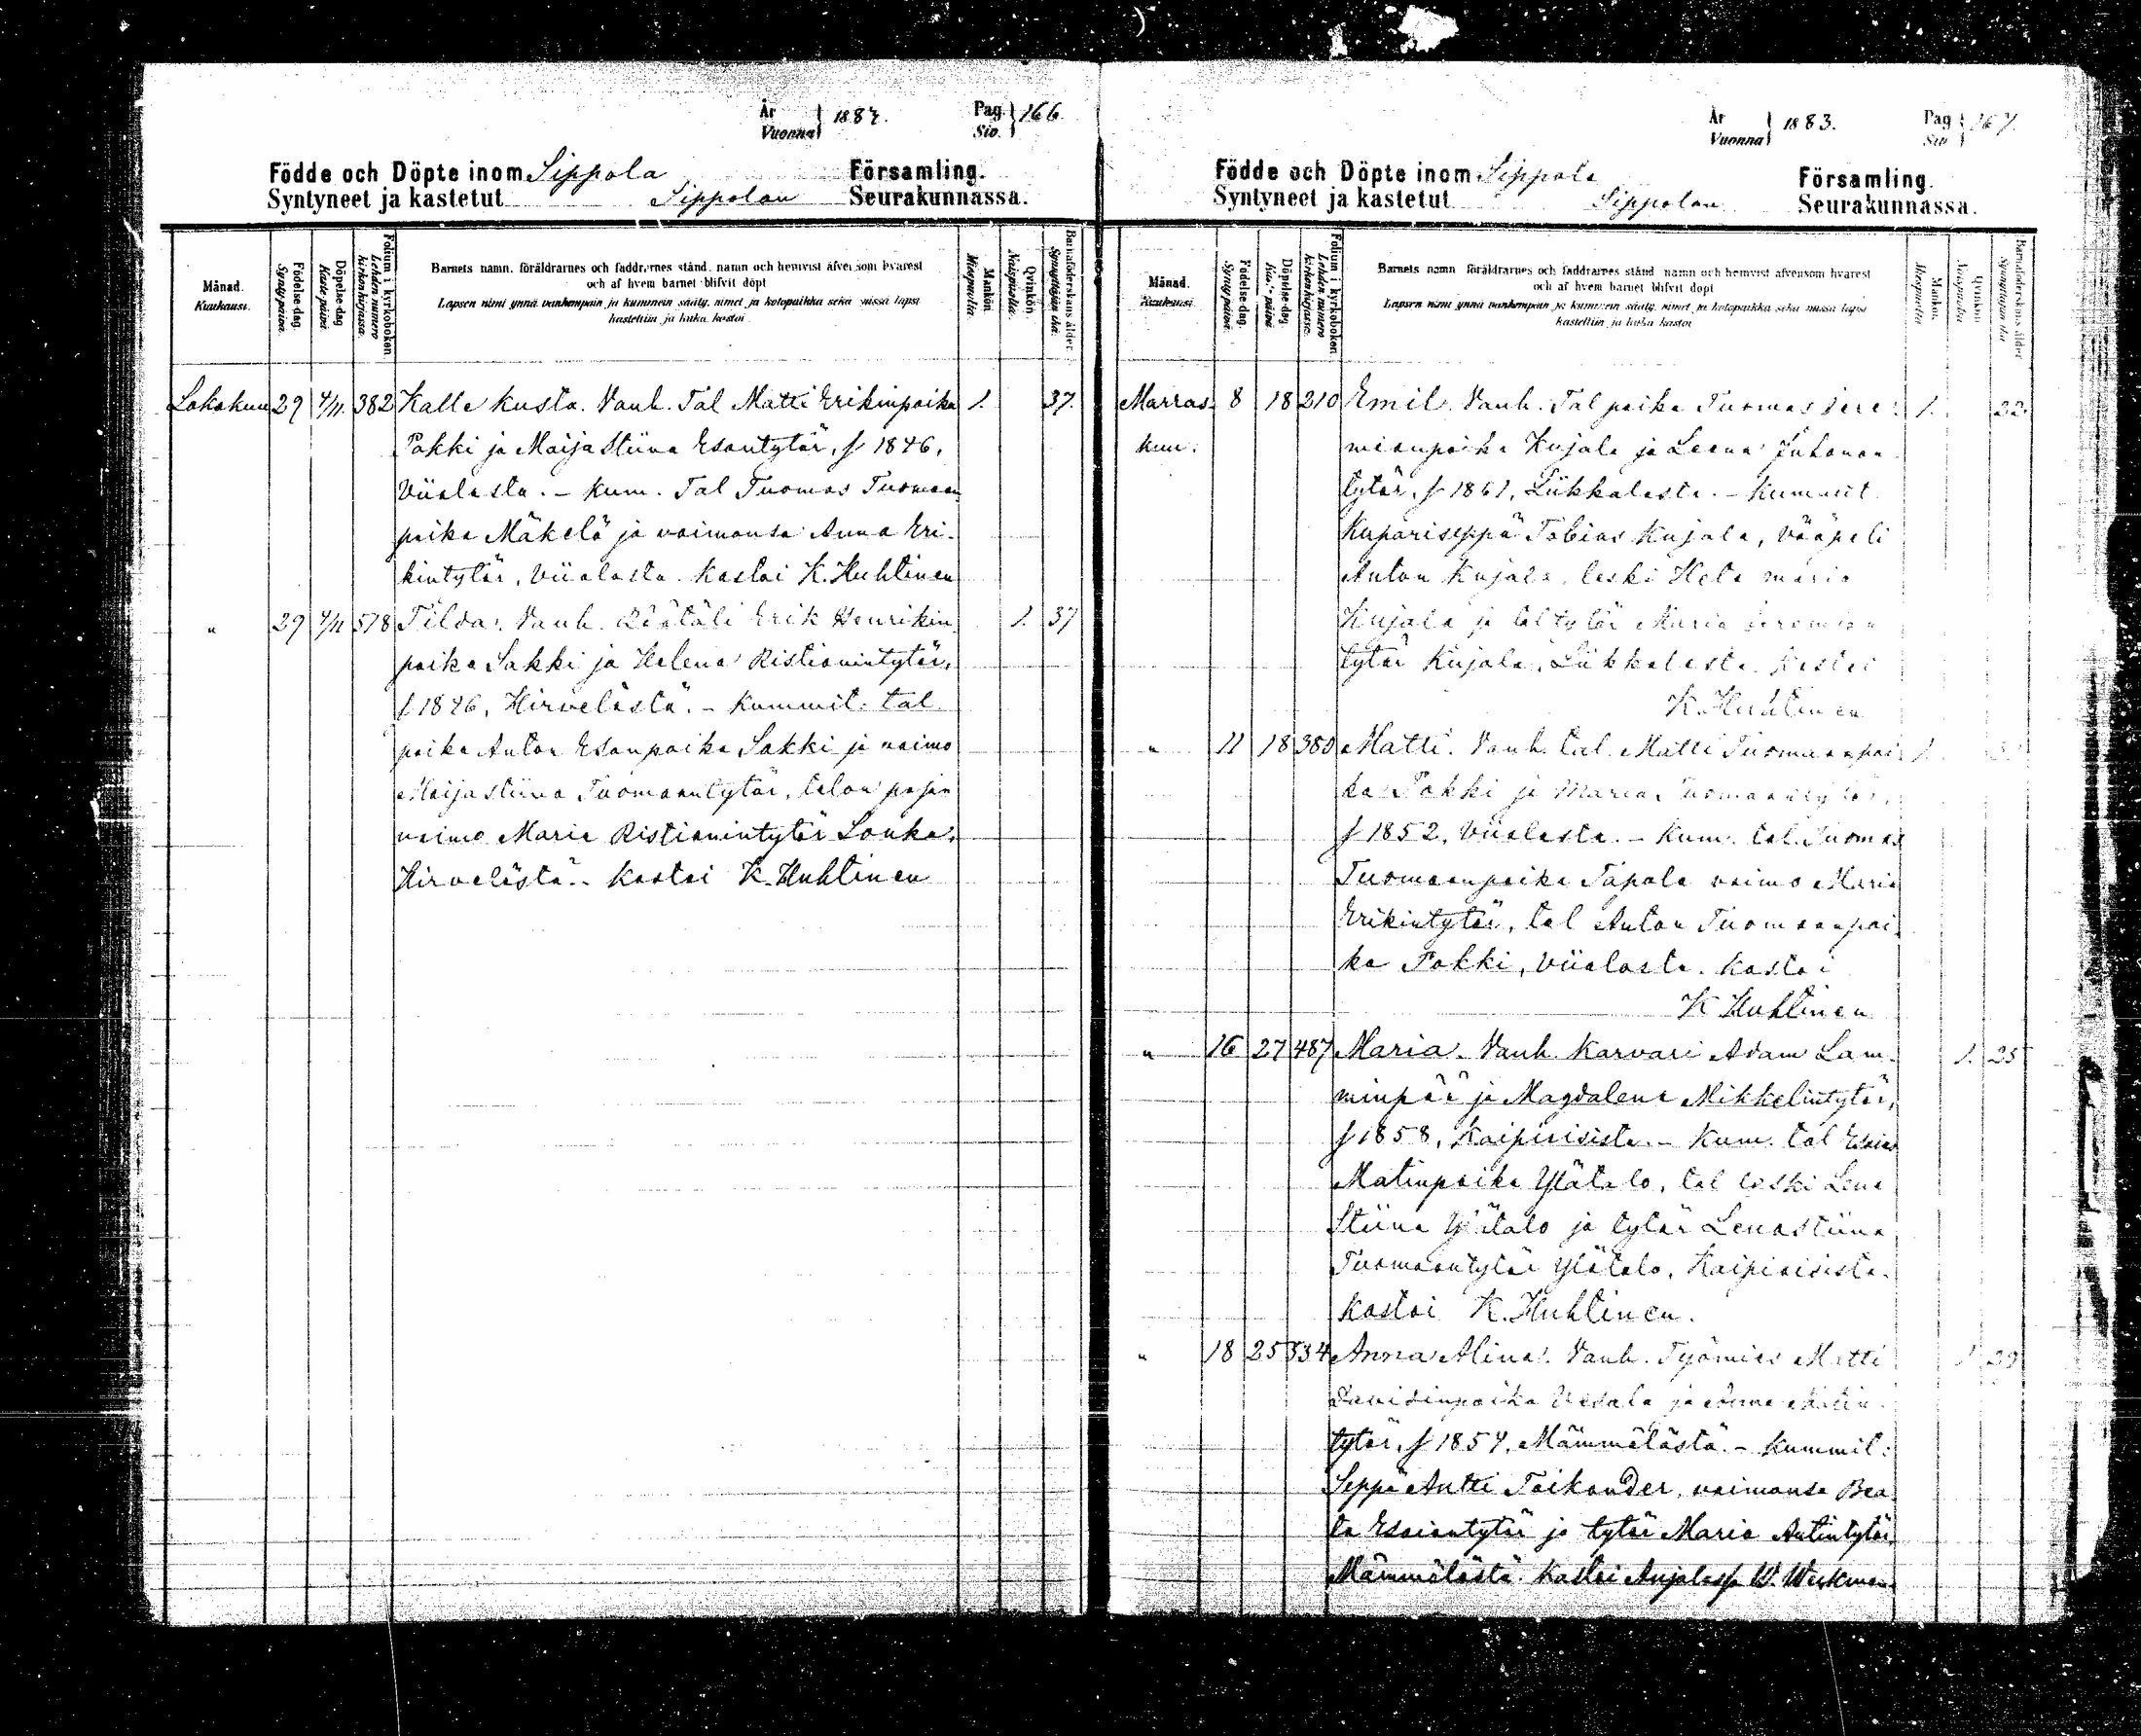 År
Vuonna
1883.
Pag
Siv.
166.
Födde och Döpte inom Sippola Församling.
Syntyneet ja kastetut Sippolan Seurakunnassa.
Månad.
Kuukausi.
Födelse-dag.
Synty-päivä.
Döpelse-dag
Kaste-päivä
Folium i kyrkoboken
Lehden numero kirkonkirjassa.
Barnets namn, föräldrarnes och faddrarnes stånd, namn och hemvist äfvensom hvarest
och af hvem barnet blifvit döpt
Lapsen nimi ynnä vanhempain ja kummein sääty, nimet ja kotopaikka sekä missä lapsi
kastettiin ja kuka kastoi
Mankön
Miespuolia.
Qvinkön
Naispuolia.
Barnaföderskans ålder
Synnyttäjän ikä.
Lokakuu 29 4/11. 382 Kalle Kusta. Vanh. Tal Matti Erikinpoika 1. 37.
Pakki ja Maija Stiina Esantytär, s 1846,
Viialasta. - Kum. Tal Tuomas Tuomaan
poika Mäkelä ja vaimonsa Anna Eri-
kintytär, Viialasta. Kastoi K. Huhtinen
" 29 4/11 578 Tilda. Vanh. Räätäli Erik Henrikin 1. 37
poika Sakki ja Helena Ristianintytär,
s 1846, Hirvelästä. - Kummit: tal.
poika Anton Esanpoika Sakki ja vaimo
Maija Stiina Tuomaantytär, talon pojan
vaimo Maria Ristianintytär Louka,
Hirvelästä. - Kastoi K. Huhtinen
År
Vuonna
1883.
Pag
Siv
167.
Födde och Döpte inom Sippola Församling.
Syntyneet ja kastetut Sippolan Seurakunnassa.
Månad.
Kuukausi.
Födelse-dag.
Synty-päivä.
Döpelse-dag
Kaste-päivä
Folium i kyrkoboken
Lehden numero kirkonkirjassa.
Barnets namn, föräldrarnes och faddrarnes stånd, namn och hemvist äfvensom hvarest
och af hvem barnet blifvit döpt
Lapsen nimi ynnä vanhempain ja kummein sääty, nimet ja kotopaikka sekä missä lapsi
kastettiin ja kuka kastoi
Mankön
Miespuolia
Qvinkön
Naispuolia
Barnaföderskans ålder
Synnyttäjän ikä
Marras- 8 18 210 Emil. Vanh. Tal poika Tuomas Jere- 1. 22.
kuu. mianpoika Kujala ja Leena Juhanan
tytär, s 1861, Liikkalasta. - Kummit
Kupariseppä Tobias Kujala, vääpeli
Anton Kujala, leski Heta Maria
Kujala ja tal tytär Maria Jeremian
tytär Kujala, Liikkalasta. Kastoi
K. Huhtinen
" 11 18 380 Matti. Vanh. tal. Matti Tuomaanpoi- 1.
ka Pakki ja Maria Tuomaantytär,
s 1852, Viialasta. - Kum. tal. Tuomas
Tuomaanpoika Tapola vaimo Maria
Erikintytär, tal Anton Tuomaanpoi-
ka Pakki, Viialasta. Kastoi
K Huhtinen
" 16 27 487 Maria. Vanh. Karvari Adam Lam- 1. 25
minpää ja Magdalena Mikkelintytär,
s 1858, Kaipiaisista. - Kum. tal Esaias
Matinpoika Ylätalo, tal leski Lena
Stiina Ylätalo ja tytär Lenastiina
Tuomaantytär Ylätalo, Kaipiaisista.
Kastoi K. Huhtinen.
" 18 25 534 Anna Alina. Vanh. Työmies Matti 1 29
Davidinpoika ja Anna
tytär, s 1854, Mämmälästä. - Kummit:
Seppä Antti Toikander, vaimonsa Bea-
ta Esaiantytär ja tytär Maria Antintytär
Mämmälästä. Kastoi Anjalassa W. Weckman.